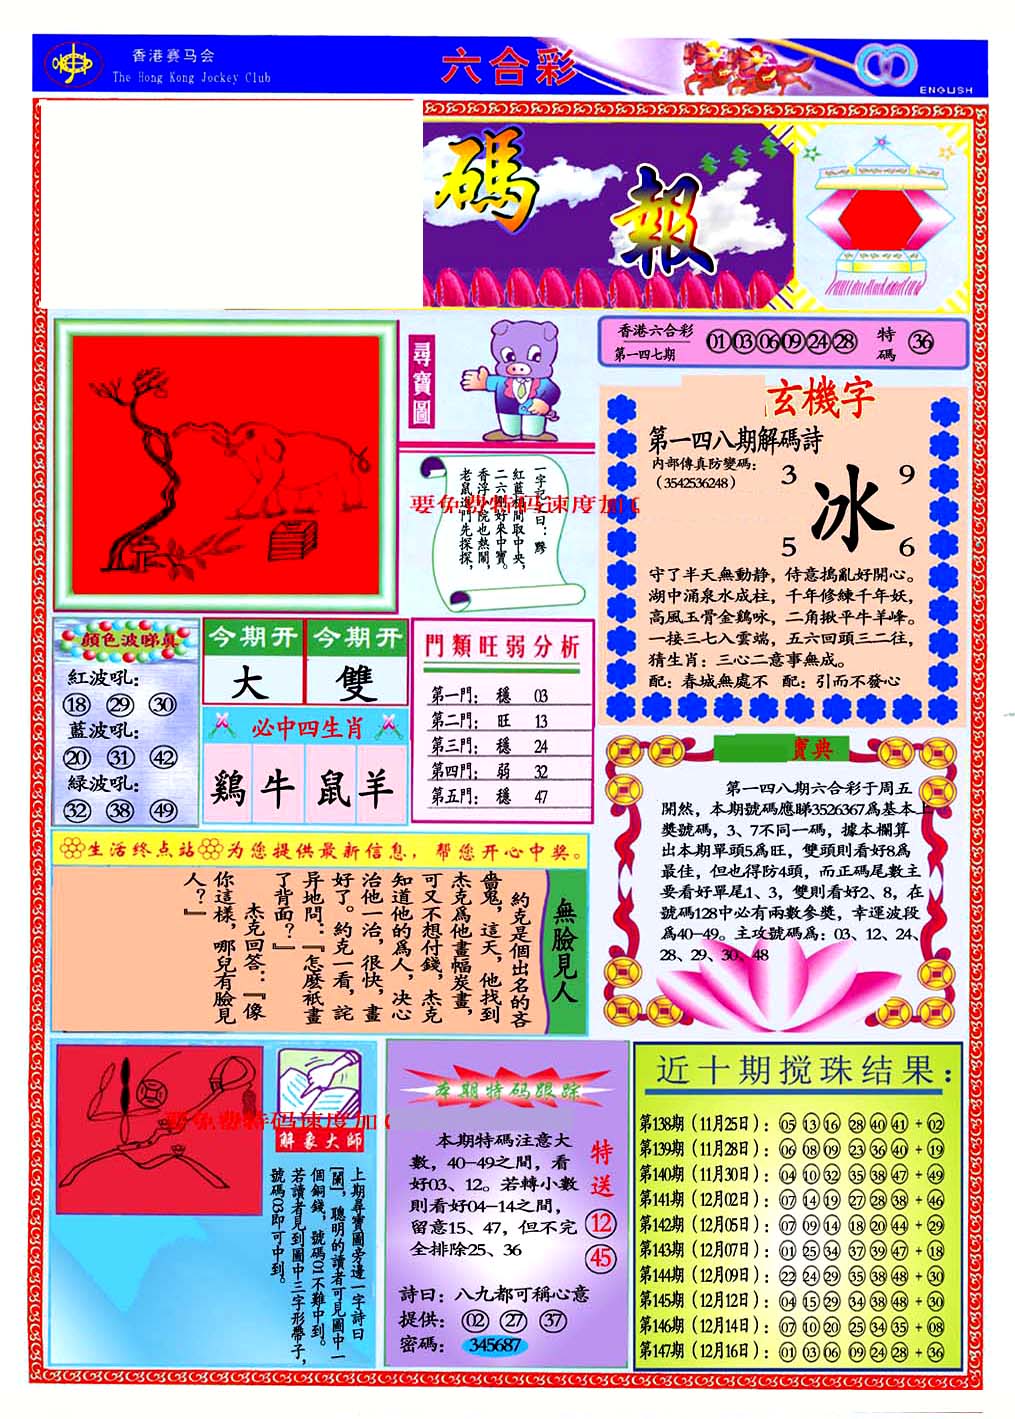 香港赛马会
The Hong Kong Jockey Club
六合彩
ENGLISH
碼報
尋寶圖
香港六合彩
第一四七期
01 03 06 09 24 28
特碼
36
玄機字
第一四八期解碼詩
内部傳真防變碼:
(3542536248)
3
9
冰
5
6
守了半天無動静，侍意搗亂好開心。
湖中涌泉水成柱，千年修練千年妖，
高風玉骨金鷄咏，二角揪平牛羊峰。
一接三七入雲端，五六回頭三二往，
猜生肖：三心二意事無成。
配：春城無處不 配：引而不發心
要免费特码速度加
顔色波睇真
紅波吼:
18 29 30
藍波吼:
20 31 42
緑波吼:
32 38 49
今期开
今期开
大
雙
必中四生肖
鷄 牛 鼠 羊
門類旺弱分析
第一門: 穩 03
第二門: 旺 13
第三門: 穩 24
第四門: 弱 32
第五門: 穩 47
寶典
第一四八期六合彩于周五
開然，本期號碼應睇3526367爲基本上
獎號碼，3、7不同一碼，據本欄算
出本期單頭5爲旺，雙頭則看好8爲
最佳，但也得防4頭，而正碼尾數主
要看好單尾1、3，雙則看好2、8，在
號碼128中必有兩數参獎，幸運波段
爲40-49。主攻號碼爲：03、12、24、
28、29、30、48
生活终点站 为您提供最新信息，帮您开心中奖。
無臉見人
約克是個出名的吝
嗇鬼，這天，他找到
杰克爲他畫幅炭畫，
可又不想付錢，杰克
知道他的爲人，决心
治他一治，很快，畫
好了。約克一看，詫
异地問：『怎麽祇畫
了背面？』
杰克回答：『像
你這樣，哪兒有臉見
人？』
要免费特码速度加
解象大師
上期尋寶圖旁邊一字詩曰
[闌]，聰明的讀者可見圖中一
個銅錢，號碼01不難中到。
若讀者見到圖中三字形帶子，
號碼03即可中到。
本期特码跟踪
本期特碼注意大
數，40-49之間，看
好03、12。若轉小數
則看好04-14之間，
留意15、47，但不完
全排除25、36
特送
12
45
詩曰：八九都可稱心意
提供：02 27 37
密碼：345687
近十期搅珠结果：
第138期(11月25日)：05 13 16 28 40 41 + 02
第139期(11月28日)：06 08 09 23 36 40 + 19
第140期(11月30日)：04 10 32 35 38 47 + 49
第141期(12月02日)：07 14 19 27 28 38 + 46
第142期(12月05日)：07 09 14 18 20 44 + 29
第143期(12月07日)：01 25 34 37 39 47 + 18
第144期(12月09日)：22 24 29 35 38 48 + 30
第145期(12月12日)：04 15 29 34 38 48 + 30
第146期(12月14日)：07 10 20 25 34 35 + 08
第147期(12月16日)：01 03 06 09 24 28 + 36